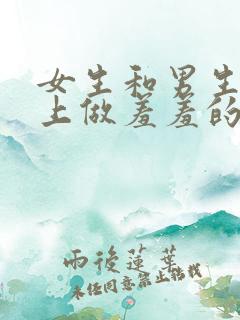 女生和男生
上做羞羞的
雨後蓮葉
未经同意禁止转载